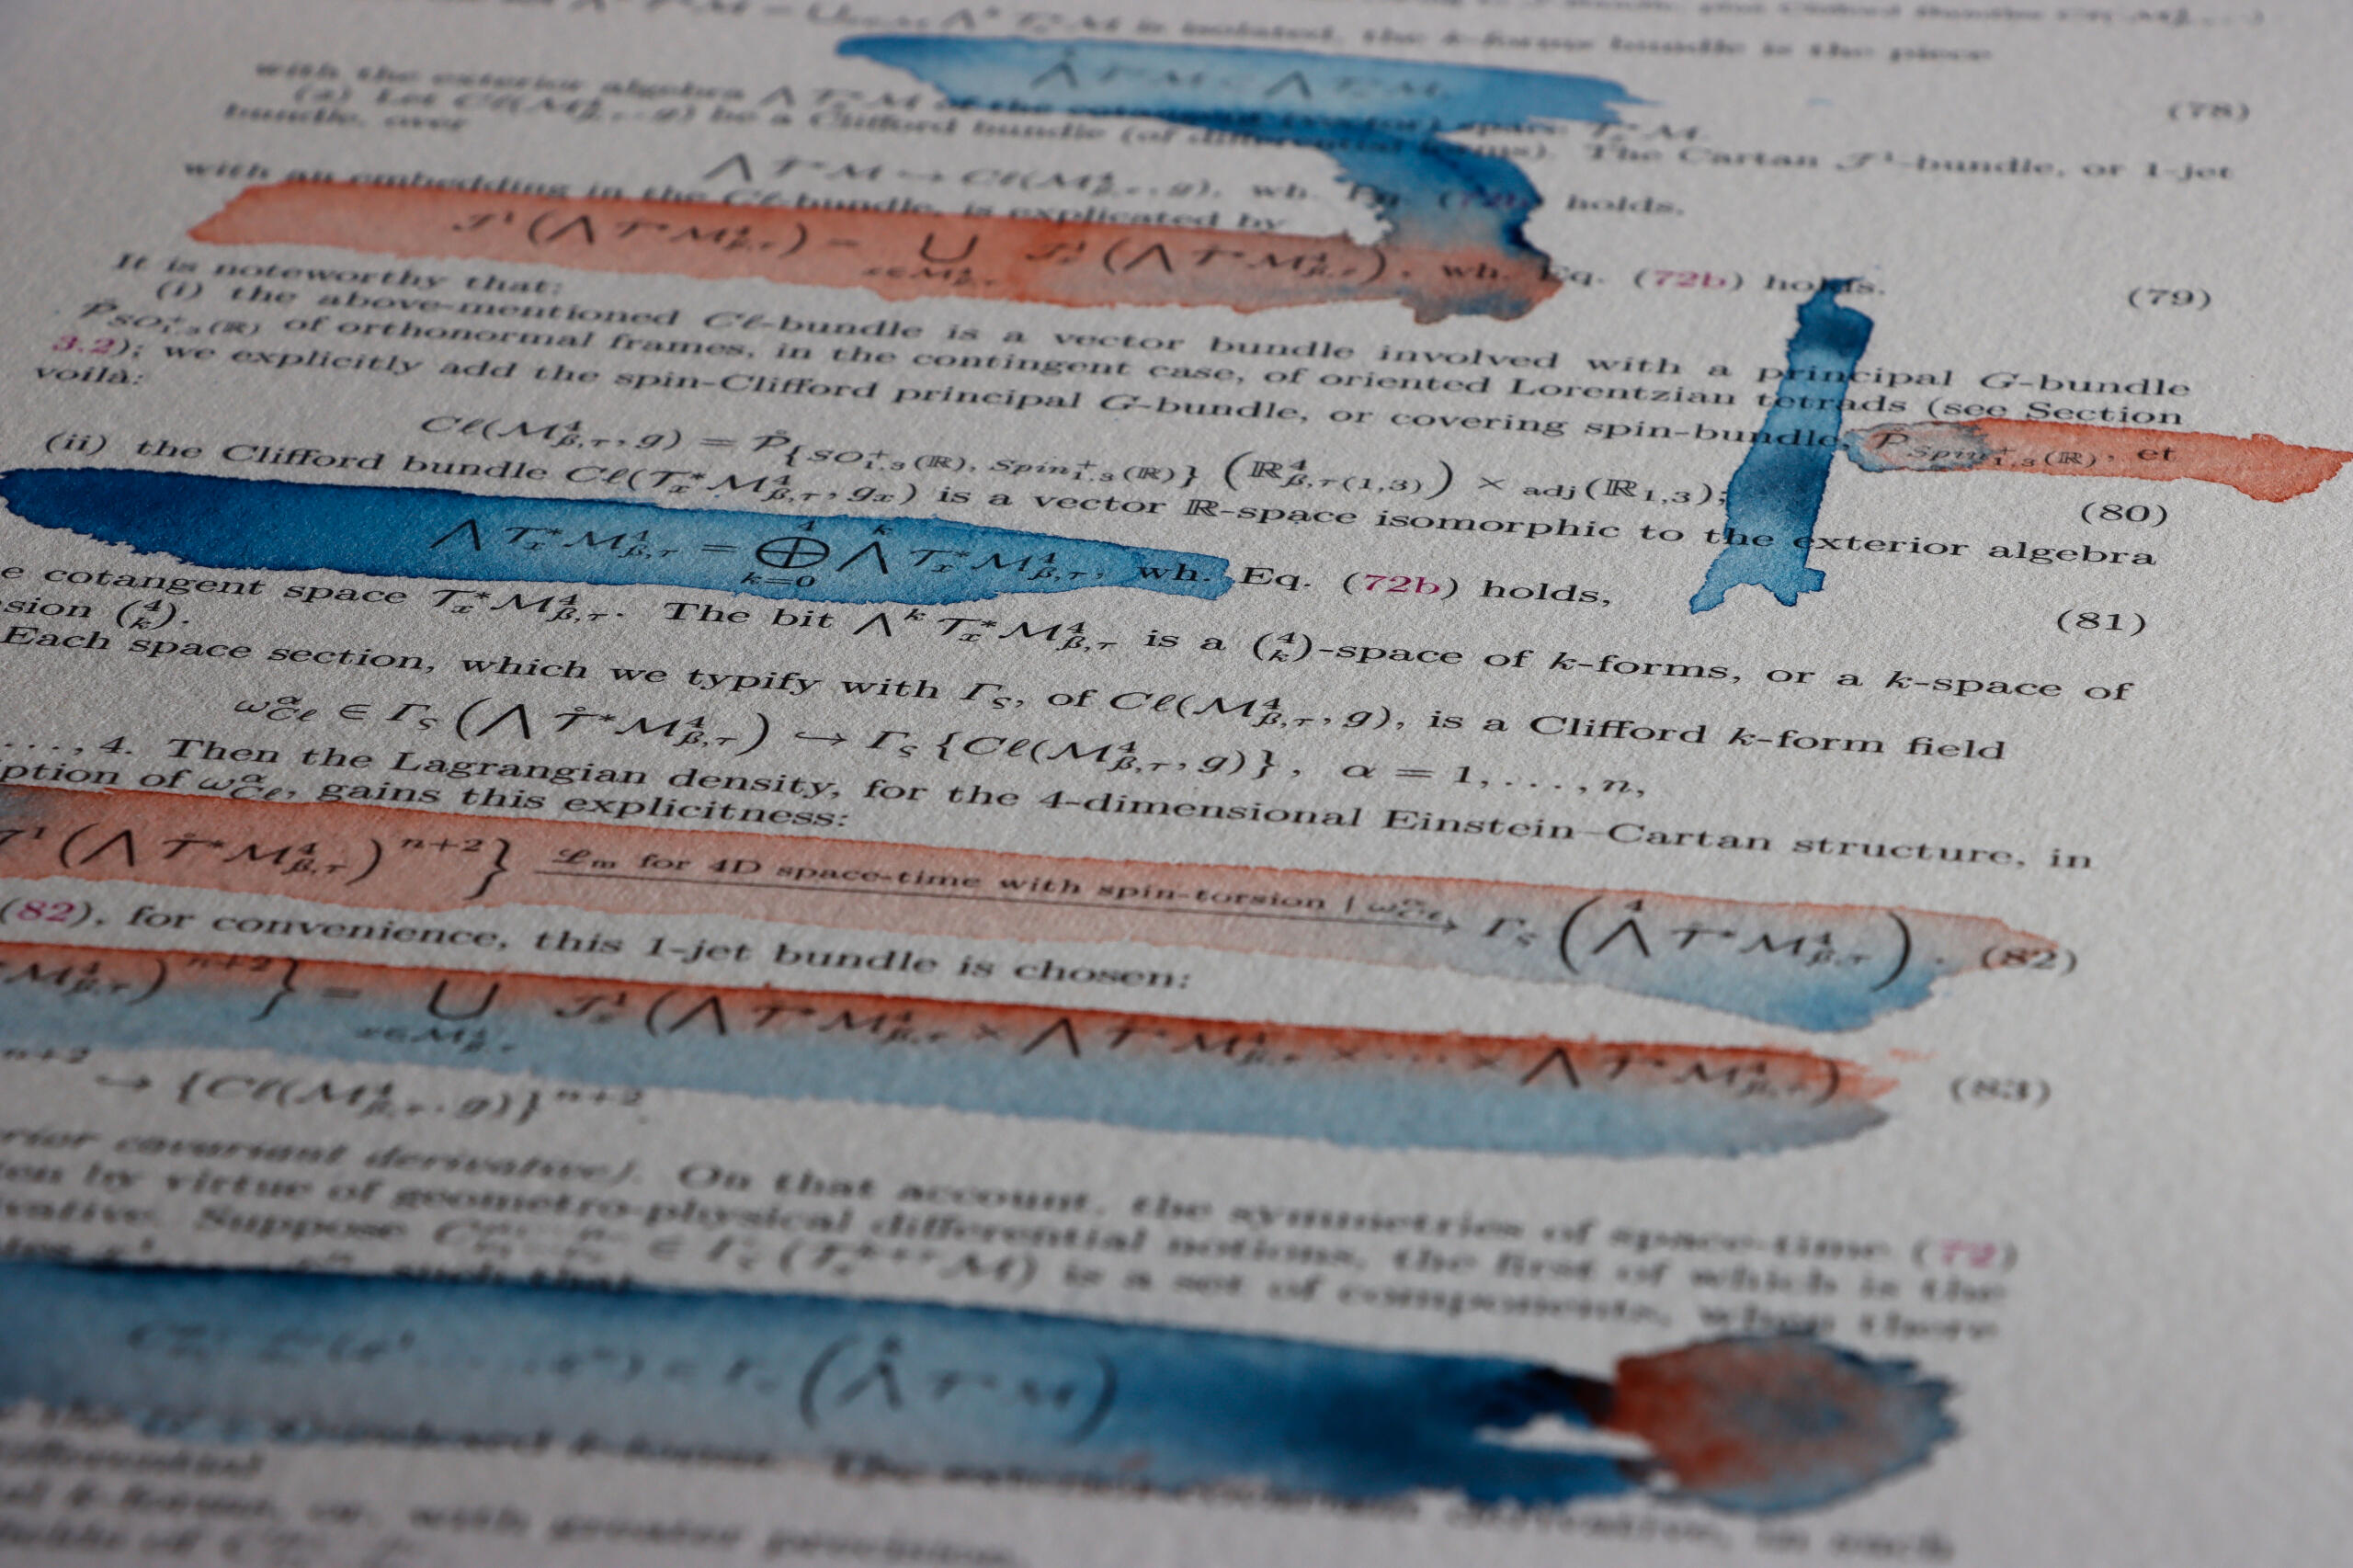 is isolated, the k-forms bundle is the piece
⋀ T*M ⊂ ⋀ T*M, (78)
with the exterior algebra ⋀ Tₓ*M of the cotangent (vector) space Tₓ*M.
(a) Let Cℓ(M⁴_β,τ, g) be a Clifford bundle (of differential forms). The Cartan J¹-bundle, or 1-jet
bundle, over
⋀ T*M ↪ Cℓ(M⁴_β,τ, g), wh. Eq. (72b) holds,
with an embedding in the Cℓ-bundle, is explicated by
J¹(⋀ T*M⁴_β,τ) = ⋃_{x∈M⁴_β,τ} Jₓ¹(⋀ T*M⁴_β,τ), wh. Eq. (72b) holds. (79)
It is noteworthy that:
(i) the above-mentioned Cℓ-bundle is a vector bundle involved with a principal G-bundle
P̊_{SO⁺₁,₃(ℝ)} of orthonormal frames, in the contingent case, of oriented Lorentzian tetrads (see Section
3.2); we explicitly add the spin-Clifford principal G-bundle, or covering spin-bundle, P̊_{Spin⁺₁,₃(ℝ)}, et
voilà:
Cℓ(M⁴_β,τ, g) = P̊_{{SO⁺₁,₃(ℝ), Spin⁺₁,₃(ℝ)}} (ℝ⁴_β,τ(1,3)) × adj(ℝ₁,₃); (80)
(ii) the Clifford bundle Cℓ(Tₓ*M⁴_β,τ, gₓ) is a vector ℝ-space isomorphic to the exterior algebra
⋀ Tₓ*M⁴_β,τ = ⨁_{k=0}^{4} ⋀^k Tₓ*M⁴_β,τ, wh. Eq. (72b) holds, (81)
e cotangent space Tₓ*M⁴_β,τ. The bit ⋀^k Tₓ*M⁴_β,τ is a (⁴ₖ)-space of k-forms, or a k-space of
sion (⁴ₖ).
Each space section, which we typify with Γ_ς, of Cℓ(M⁴_β,τ, g), is a Clifford k-form field
ω^α_Cℓ ∈ Γ_ς(⋀ T̊*M⁴_β,τ) ↪ Γ_ς{Cℓ(M⁴_β,τ, g)}, α = 1, . . . , n,
. . . , 4. Then the Lagrangian density, for the 4-dimensional Einstein–Cartan structure, in
ption of ω^α_Cℓ, gains this explicitness:
J¹(⋀ T̊*M⁴_β,τ)^{n+2}} ℒₘ for 4D space-time with spin-torsion | ω^α_Cℓ → Γ_ς(⋀⁴ T̊*M⁴_β,τ). (82)
(82), for convenience, this 1-jet bundle is chosen:
M⁴_β,τ)^{n+2}} = ⋃_{x∈M⁴_β,τ} Jₓ¹(⋀ T*M⁴_β,τ × ⋀ T*M⁴_β,τ × · · · × ⋀ T*M⁴_β,τ) (83)
n+2 ↪ {Cℓ(M⁴_β,τ, g)}^{n+2}.
rior covariant derivative). On that account, the symmetries of space-time (72)
en by virtue of geometro-physical differential notions, the first of which is the
vative. Suppose ∈ Γ_ς(M) is a set of components, when there
such that
(⋀ T*M)
k-forms. The
k-forms, or, with greater precision,